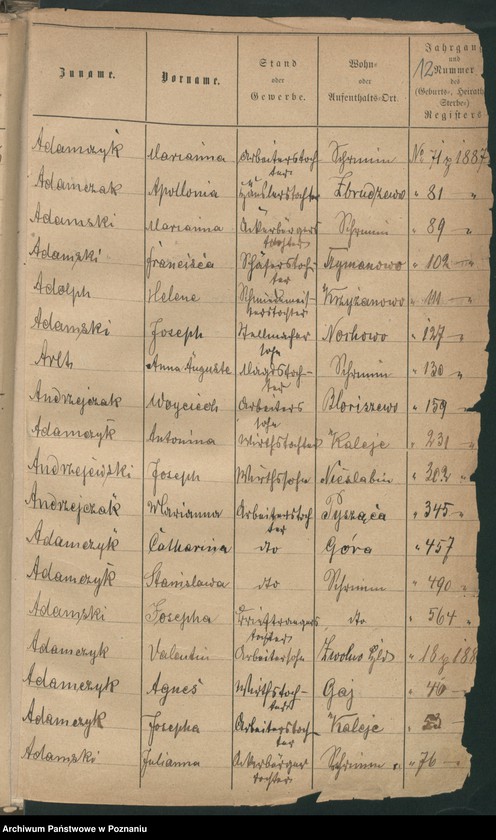 Zuname. Vorname. Stand oder Gewerbe. Wohn- oder Aufenthalts-Ort. Jahrgang und 12 Nummer des (Geburts-, Heiraths- Sterbe-) Registers
Adamczyk Marianna Arbeiterstochter Schrimm No 71 y 1887
Adamczak Apollonia Häuslerstochter Zbrudzewo " 81 "
Adamski Marianna Ackerbürgerstochter Schrimm " 89 "
Adamski Francisca Schäferstochter Szymanowo " 102 "
Adolph Helene Schmiedmeisterstochter Krzyżanowo " 111 "
Adamski Joseph Stellmachersohn Nochowo " 127 "
Arlt Anna Auguste Schrimm " 130 "
Andrzejczak Woyciech Arbeiterssohn " 159 "
Adamczyk Antonina Wirthstochter Kaleje " 231 "
Andrzejewski Joseph Wirthssohn Nieslabin " 302 "
Andrzejczak Marianna Arbeiterstochter Pysząca " 345 "
Adamczyk Catharina dto Góra " 457
Adamczyk Stanislawa dto Schrimm " 490 "
Adamski Josepha Briefträgerstochter dto " 564 "
Adamczyk Valentin Arbeitersohn " 18 y 188
Adamczyk Agnes Wirthstochter Gaj " 40 "
Adamczyk Josepha Arbeiterstochter Kaleje "
Adamski Julianna Ackerbürgertochter Schrimm " 76 "
Archiwum Państwowe w Poznaniu